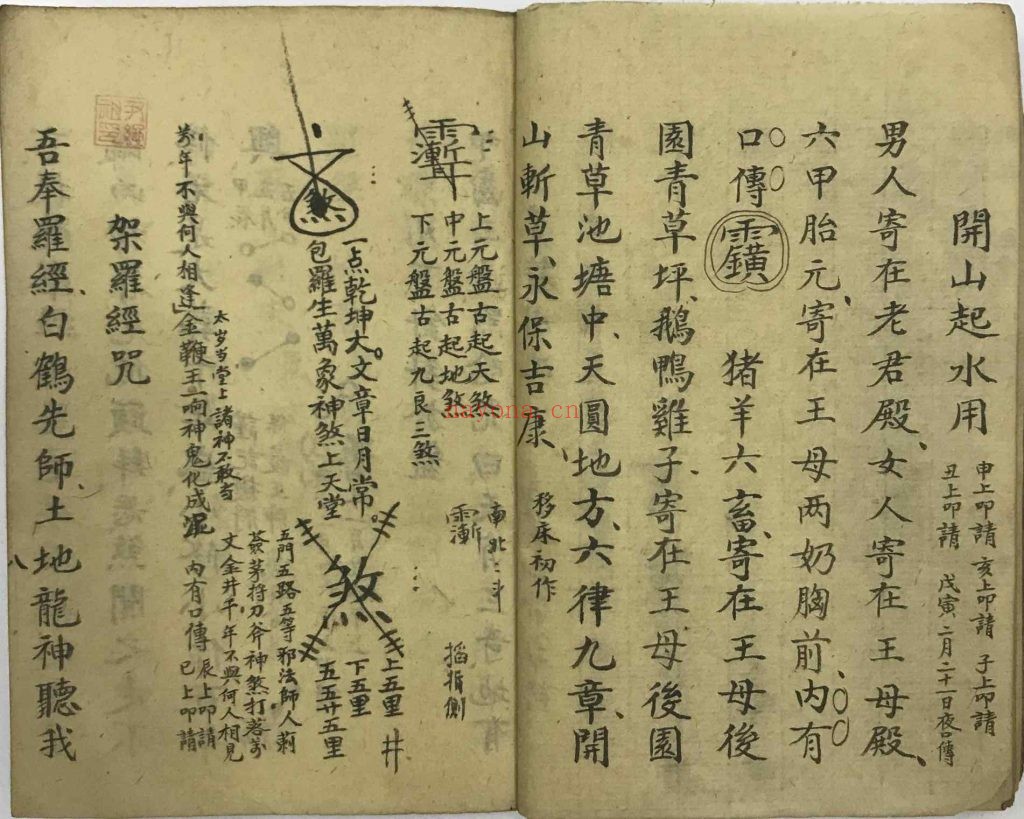 開山起水用
申上叩請 亥上叩請 子上叩請
丑上叩請 戊寅二月二十一日夜口傳
男人寄在老君殿、女人寄在王母殿、
六甲胎元、寄在王母两奶胸前、内有
口傳 猪羊六畜、寄在王母後
園青草坪、鵝鴨雞子、寄在王母後園
青草池塘中、天圓地方、六律九章、開
山斬草、永保吉康、
移床初作
上元盤古起天煞
中元盤古起地煞
下元盤古起九良三煞
南北二斗
掐指側
煞
一点乾坤大。文章日月常。
包羅生萬象神煞上天堂
煞
上五里
下五里
五五廿五里
井
五門五路五等邪法師人剃
茅將刀斧神煞打落萬
文金井千年不與何人相見
萬年不與何人相逢
金鞭王一响神鬼化成泥
内有口傳
辰上叩請
巳上叩請
太岁当堂上諸神不敢当
架羅經咒
吾奉羅經、白鶴先師、土地龍神聽我
八
nayong.cn